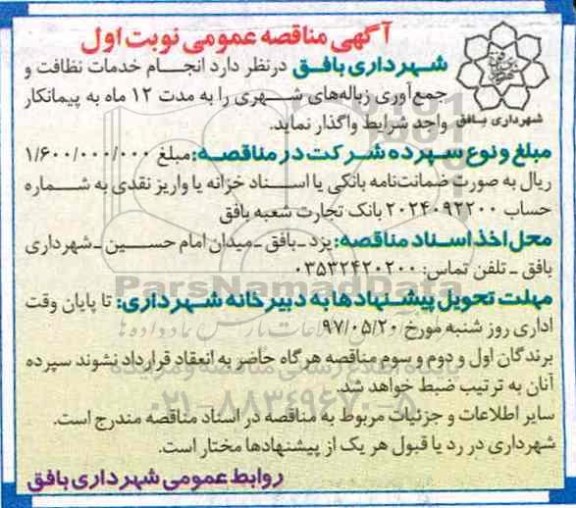 آگهی مناقصه عمومی نوبت اول
شهرداری بافق درنظر دارد انجام خدمات نظافت و
جمع‌آوری زباله‌های شهری را به مدت ۱۲ ماه به پیمانکار
واجد شرایط واگذار نماید.
شهرداری بافق
مبلغ و نوع سپرده شرکت در مناقصه: مبلغ ۱/۶۰۰/۰۰۰/۰۰۰
ریال به صورت ضمانت‌نامه بانکی یا اسناد خزانه یا واریز نقدی به شماره
حساب ۲۰۲۴۰۹۲۲۰۰ بانک تجارت شعبه بافق
محل اخذ اسناد مناقصه: یزد ـ بافق ـ میدان امام حسین ـ شهرداری
بافق ـ تلفن تماس: ۰۳۵۳۲۴۲۰۲۰۰
مهلت تحویل پیشنهادها به دبیرخانه شهرداری: تا پایان وقت
اداری روز شنبه مورخ ۹۷/۰۵/۲۰
برندگان اول و دوم و سوم مناقصه هرگاه حاضر به انعقاد قرارداد نشوند سپرده
آنان به ترتیب ضبط خواهد شد.
سایر اطلاعات و جزئیات مربوط به مناقصه در اسناد مناقصه مندرج است.
شهرداری در رد یا قبول هر یک از پیشنهادها مختار است.
روابط عمومی شهرداری بافق
ParsNamadData
۰۲۱-۸۸۳۴۹۶۷۰-۵